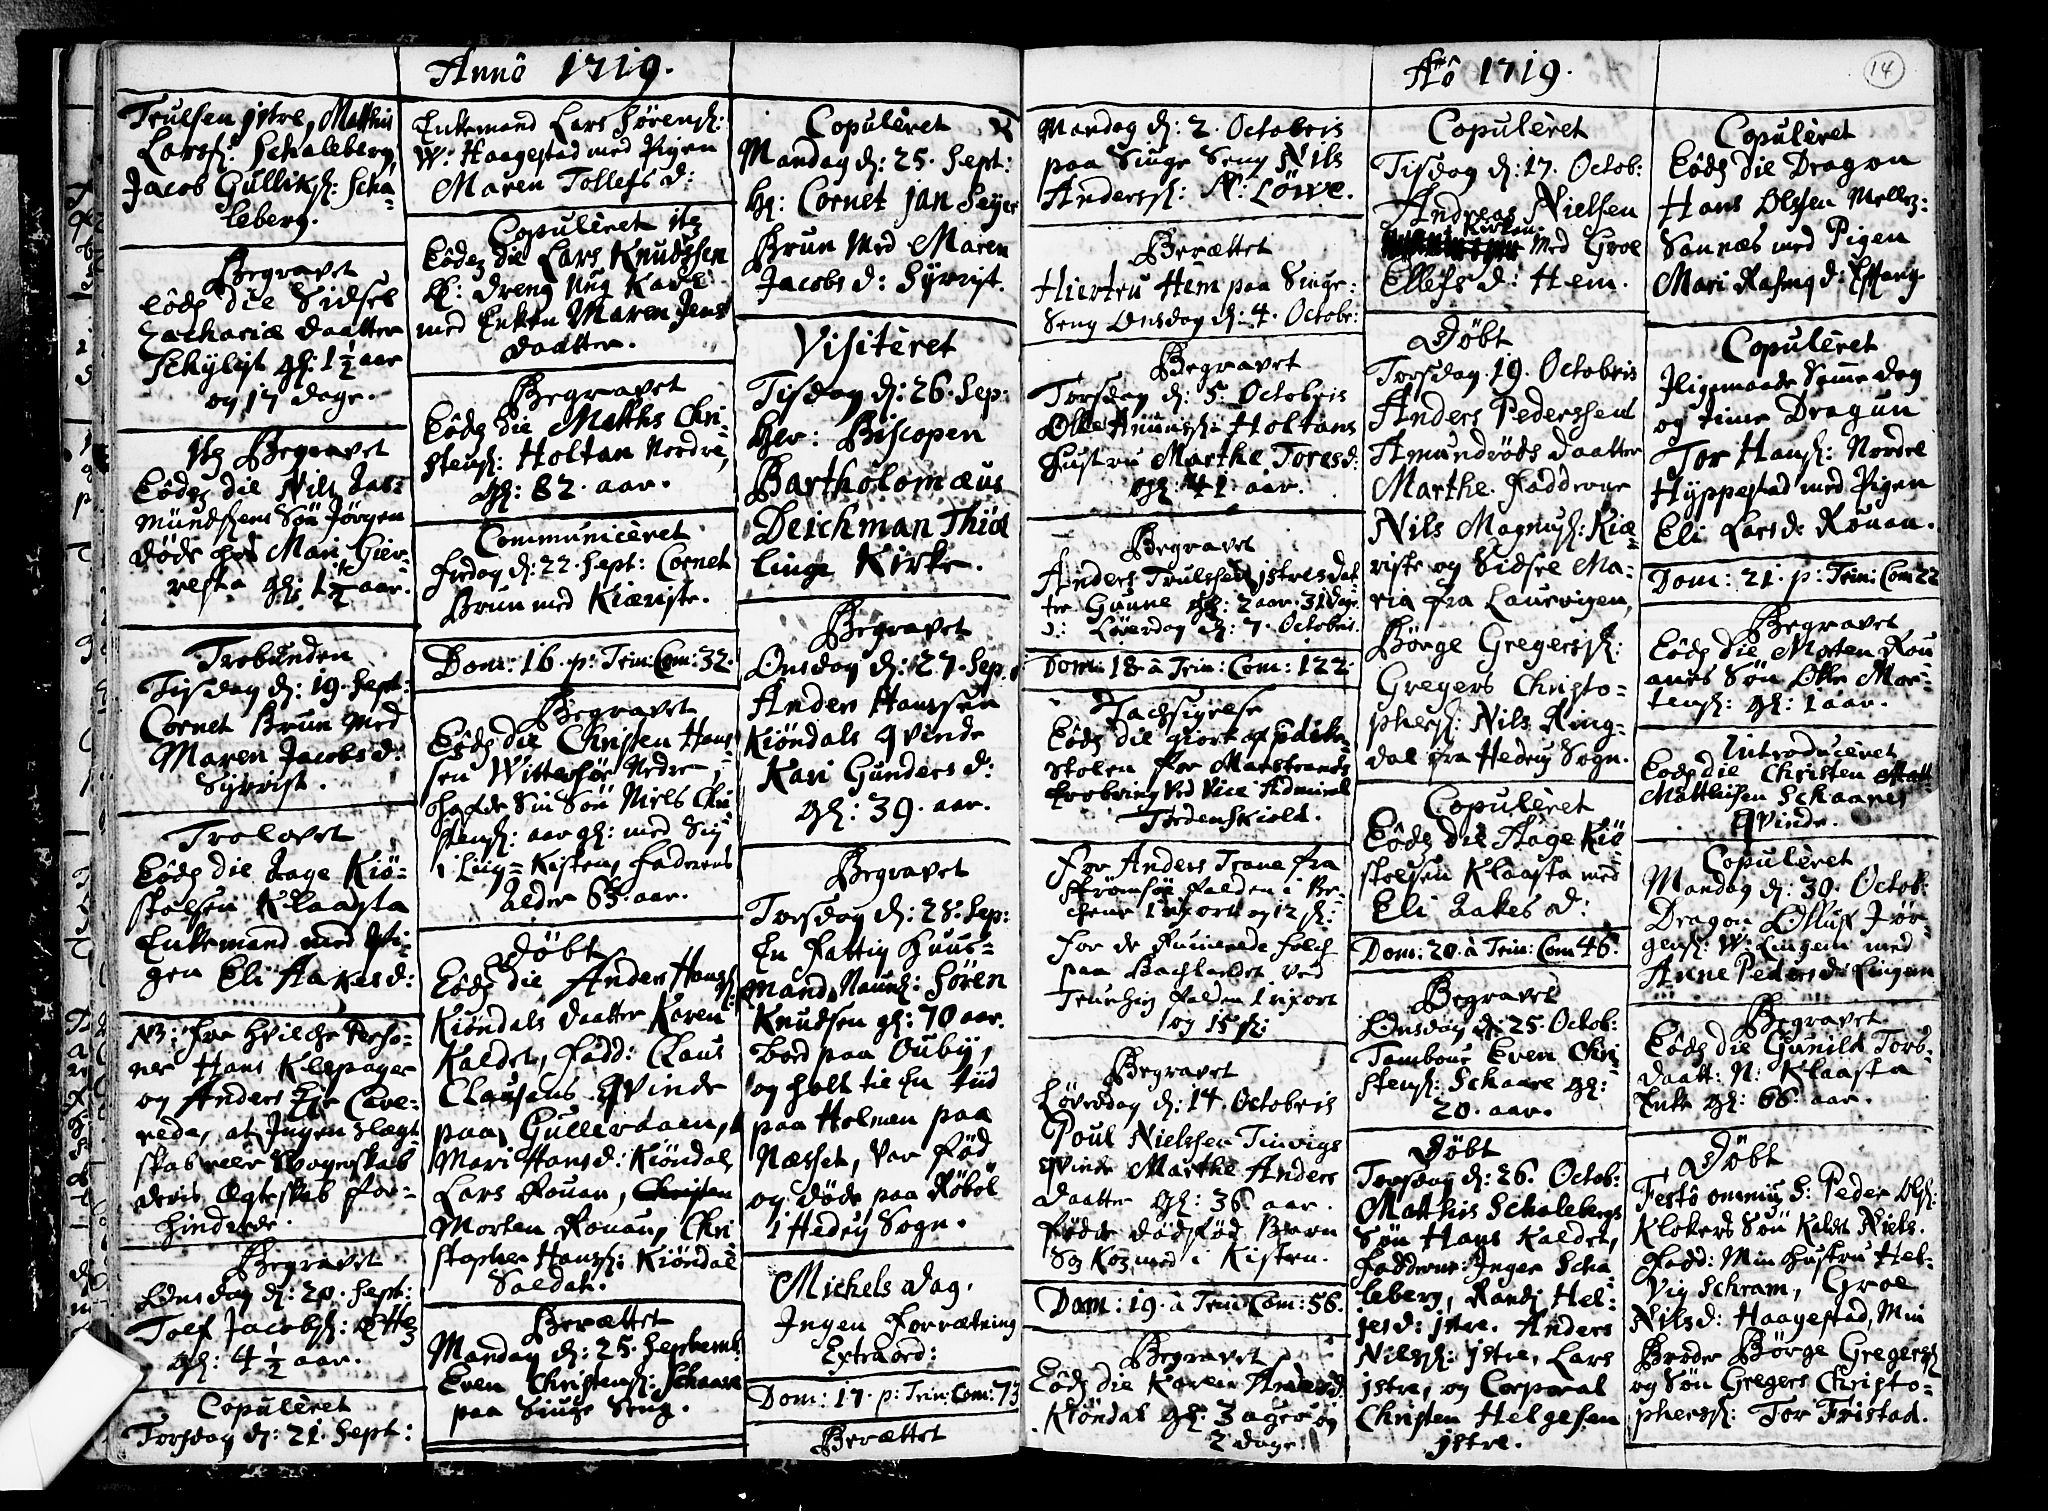 Annô 1719.
Trulsen jstre, Matthis
Larsß: Schaleberg,
Jacob Gulliksß: Scha-
leberg.
Begravet
Eôdẽ die Sidsel
Zachariæ Daatter
Schÿlist gl: 1½ aar
og 17 dage.
Itẽ Begravet
Eôdẽ die Nils Jas-
mündsens Søn Jørgen
døde hos Mari Gier-
resta gl: 1½ aar.
Trobunden
Tisdag d: 19. Sept:
Cornet Brun Med
Maren Jacobs d:
Syrrist.
Trolovet
Eôdẽ die Aage Kiø-
stolsen Klaasta
Enkemand med Pi-
gen Eli Aakes d:
NB: for hvilche Perso-
ner Hans Klepager
og Anders Eje Cave-
rede, at Ingen Slegt
skab eller Svogerskab
deris Egteskab for-
hindrede.
Begravet
Onsdag d: 20. Sept:
Tolf Jacobsß:
gl: 4½ aar.
Copulêret
Torsdag d: 21. Sept:
Enkemand Lars Sørensß:
W: Haagestad med Pigen
Maren Tollefs d:
Copulêret itẽ
Eôdẽ die Lars Knudssen
dreng
med Enken Maren Jens
daatter.
Begravet
Eôdẽ die Matths Chri-
stensß: Holtan Nordre,
gl: 82. aar.
Communicêret
fredag d: 22. Sept: Cornet
Brun med Kiæriste.
Dom: 16. p: Trin: Com: 32.
Begravet
Eôdẽ die Christen Hans
sen Wittersøe Nedre,
hafde Sin Søn Niels Chri
stensß: aar gl: med Sig
i Liig-Kisten, faderens
Alder 63. aar.
Døbt
Eôdẽ die Anders Hansß:
Kiøndals Daatter Karen
Kaldet, Fadd: Claus
Clausens Qvinde
paa Gullerdaen,
Mari Hansd: Kiøndal,
Lars Rouan, Christen
Morten Rouau, Chri-
stopher Hansß: Kiøndal
Saldat.
Berættet
Mandag d: 25. Septemb:
Even Christensß: Schaare
paa Siuge Seng.
Copulêret
Mandag d: 25. Sept:
Hr: Cornet Jan Seyer
Brun Med Maren
Jacobs d: Syrrist.
Visitêret
Tisdag d: 26. Sep:
Her: Biscopen
Bartholomæus
Deichman Thiø
linge Kirke.
Begravet
Onsdag d: 27. Sep.
Anders Hanssen
Kiøndals Qvinde
Kari Gunders d:
gl: 39. aar.
Begravet
Torsdag d: 28. Sep:
En Fattig Huus-
Mand Naunl: Søren
Knudsen gl: 70 aar.
boed paa Oubÿ,
og holt til En tiid
paa Holmen paa
Næsset, var fød
og døde paa Røbøl
i Hedrÿ Sogn.
Michels dag.
Ingen Forretning
Extraord:
Dom: 17. p: Trin: Com: 73
Berættet
Aô 1719.
14
Mandag d: 2. Octobris
paa Siuge Seng Nils
Andersß: N: Löwe.
Berættet
Hiertru Hem paa Siuge-
Seng Onsdag d: 4. Octobr:
Begravet
Torsdag d: 5. Octobris
Olle Amunsß: Holtans
Hustru Marthe Tores d:
gl: 41. aar.
Begravet
Anders Trulssen jstres dat
ter Gunne gl: 2 aar. 31 dage
d: Løverdag d: 7. Octobris.
Dom: 18 â Trin: Com: 122.
Tachsigelse
Eôdẽ die giort af Prædike-
stolen for Marstrands
Erobring ved Vice Admiral
Tordenskiold.
For Anders Trane fra
Strømsøe falden i Be-
chene 1 ½ort og 12 ß:
For de Ruinerede folch
paa Bachlandet ved
Trunhiem falden 1 ½ort
og 15 ß:
Begravet
Løverdag d: 14. Octobris
Poul Nielssen Tinvigs
Qvinde Marthe Anders
Daatter gl: 36 aar.
fødde dødfød Barn
Som Kom med i Kisten.
Dom: 19. â Trin: Com: 56.
Begravet
Eôdẽ die Karen Andersd.
Kiøndal gl: 3 uger og
2 dage.
Copulêret
Tisdag d: 17. Octob:
Andreas Nielsen
Kirken Med Groe
Ellefs d: Hem.
Døbt
Torsdag 19. Octobris
Anders Pederssens
Amundrøds Daatter
Marthe. Fadderne
Nils Magnusß: Kiæ-
riste og Sidsel Ma-
ria fra Laurvigen,
Børge Gregersß:
Gregers Christo-
phersß: Nils Ring-
dal fra Hedrÿ Sogn.
Copulêret
Eôdẽ die Aage Kiø
stolsen Klaasta med
Eli Aakes d:
Dom: 20. â Trin: Com 46.
Begravet
Onsdag d: 25. Octob:
Tambour Even Chri
stensß: Schaare gl:
20. aar.
Døbt
Torsdag d: 26. Octob:
Matthis Schalebergs
Søn Hans Kaldet,
Fadderne: Inger Scha-
leberg, Randj Hel-
jes d: jstre. Anders
Nilsß: jstre, Lars
jstre, og Corporal
Christen Helgesen
jstre.
Copulêret
Eôdẽ die Dragon
Hans Olssen Mellẽ-
Sannæs med Pigen
Mari Rasmg d:
Copulêret
Iligemaade Same dag
og time Dragun
Tor Hansß: Nordre
Hÿppestad med Pigen
Eli Lars d: Rouau.
Dom: 21. p: Trin: Com 22
Begravet
Eôdẽ die Morten Rou
anes Søn Olle Mor-
tensß: gl: 1 aar.
Introducêret
Eodẽ die Christen Matt
Matthisen Schaares
Qvinde.
Copulêret
Mandag d: 30. Octob:
Dragon Olluf Jør-
gensß: W: Lingem med
Anne Peders d: Lingem
Begravet
Eôdẽ die Gunild Torb-
daatt: N: Klaasta
Enke gl: 66. aar.
Døbt
Festô omniũ S: Peder Olsß:
Klokers Søn Kaldt Niels.
Fadd: Min Hustru Hel-
vig Schram, Groe
Nilsd: Haagestad, Min
Broder Børge Gregersß
og Søn Gregers Christo-
phersß: Tor Fristad.